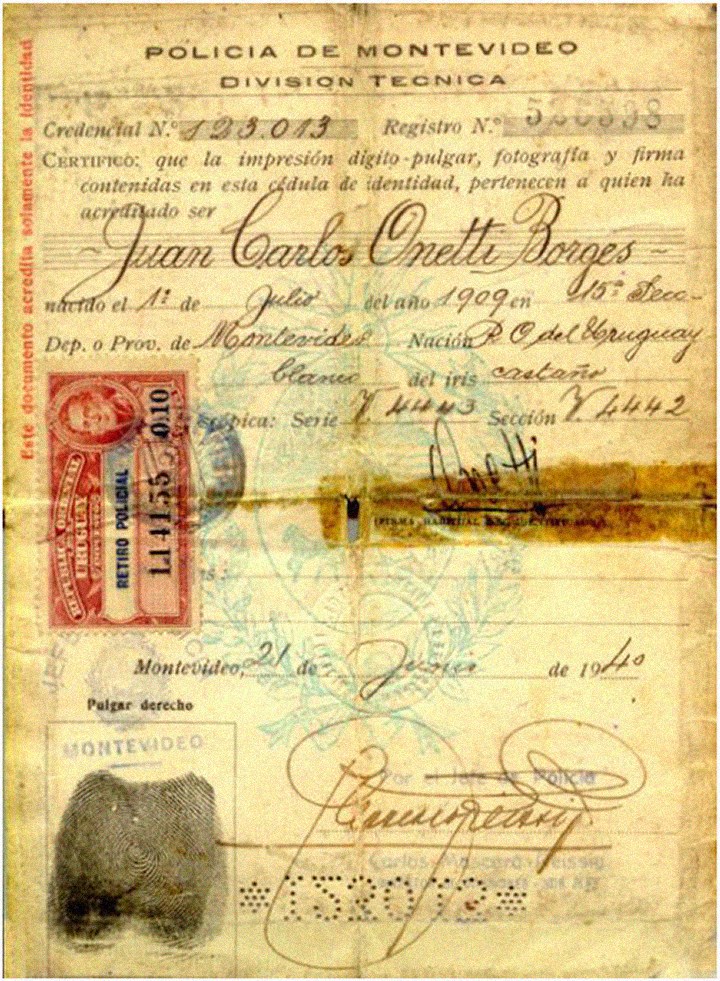 POLICIA DE MONTEVIDEO
DIVISION TECNICA
Credencial N.º 123.013 Registro N.º
CERTIFICO: que la impresión dígito-pulgar, fotografía y firma
contenidas en esta cédula de identidad, pertenecen a quien ha
acreditado ser
Juan Carlos Onetti Borges
nacido el 1º de Julio del año 1909 en 15ª Secc.
Dep. o Prov. de Montevideo Nación R. O. del Uruguay
blanco del iris castaño
scópica: Serie V. 4443 Sección V. 4442
Onetti
Este documento acredita solamente la identidad
REPUBLICA ORIENTAL
URUGUAY
RETIRO POLICIAL
L1 4155 0.10
Montevideo, 21 de Junio de 1940
Pulgar derecho
MONTEVIDEO
Por el Jefe de Policía